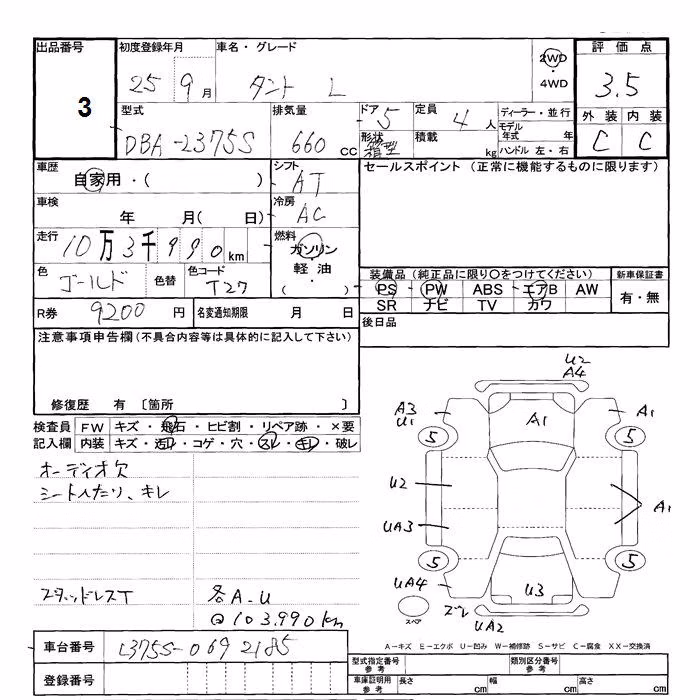 出品番号
3
初度登録年月
25 9 月
車名・グレード
タント L
2WD
4WD
評価点
3.5
型式
DBA-L375S
排気量
660 cc
ドア 5
形状 箱型
定員 4 人
積載 kg
ディーラー・並行
モデル年式 年
ハンドル 左・右
外装 内装
C C
車歴
自家用・( )
シフト
AT
セールスポイント (正常に機能するものに限ります)
車検
年 月( 日)
冷房
AC
走行
10万3千990km
燃料
ガソリン
・
軽油
( )
色
ゴールド
色替
色コード
T27
装備品 (純正品に限り○をつけてください)
PS PW ABS エアB AW
SR ナビ TV カワ
新車保証書
有・無
R券 9200 円
名変通知期限 月 日
後日品
注意事項申告欄(不具合内容等は具体的に記入して下さい)
修復歴 有 〔箇所 〕
検査員記入欄
FW キズ・飛石・ヒビ割・リペア跡・×要
内装 キズ・汚れ・コゲ・穴・スレ・キレ・破レ
オーディオ欠
シートへたり、キレ
スタッドレスT
各A.U
@103.990km
U2
A4
A3
U1
A1
A1
5
5
U2
UA3
A1
5
5
UA4
U3
スペア
ズレ
UA2
A-キズ E-エクボ U-凹み W-補修跡 S-サビ C-腐食 XX-交換済
車台番号
L375S-0692185
登録番号
型式指定番号
参考
類別区分番号
参考
車庫証明用
参考
長さ cm
幅 cm
高さ cm